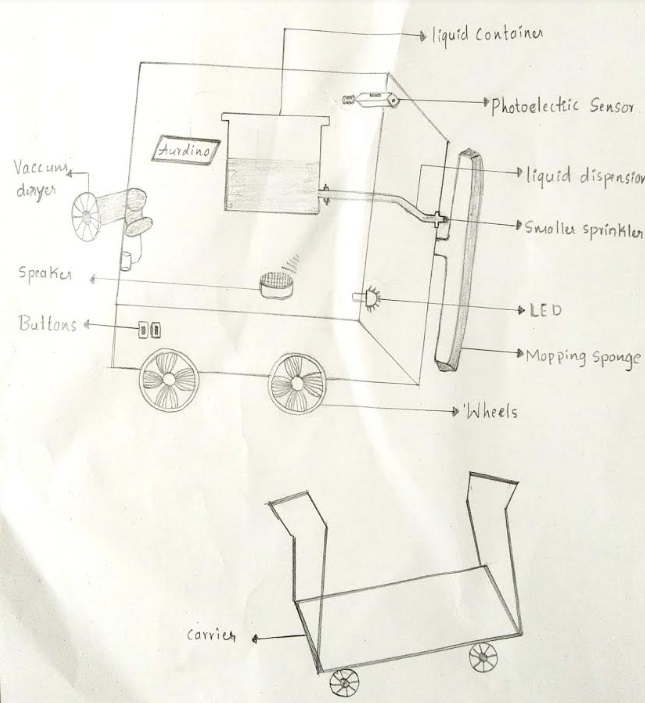 liquid container
Photoelectric Sensor.
Aurdino
Vaccum
dryer
liquid dispension
Smaller sprinkler
Speaker
LED
Buttons
Mopping sponge
Wheels
Carrier